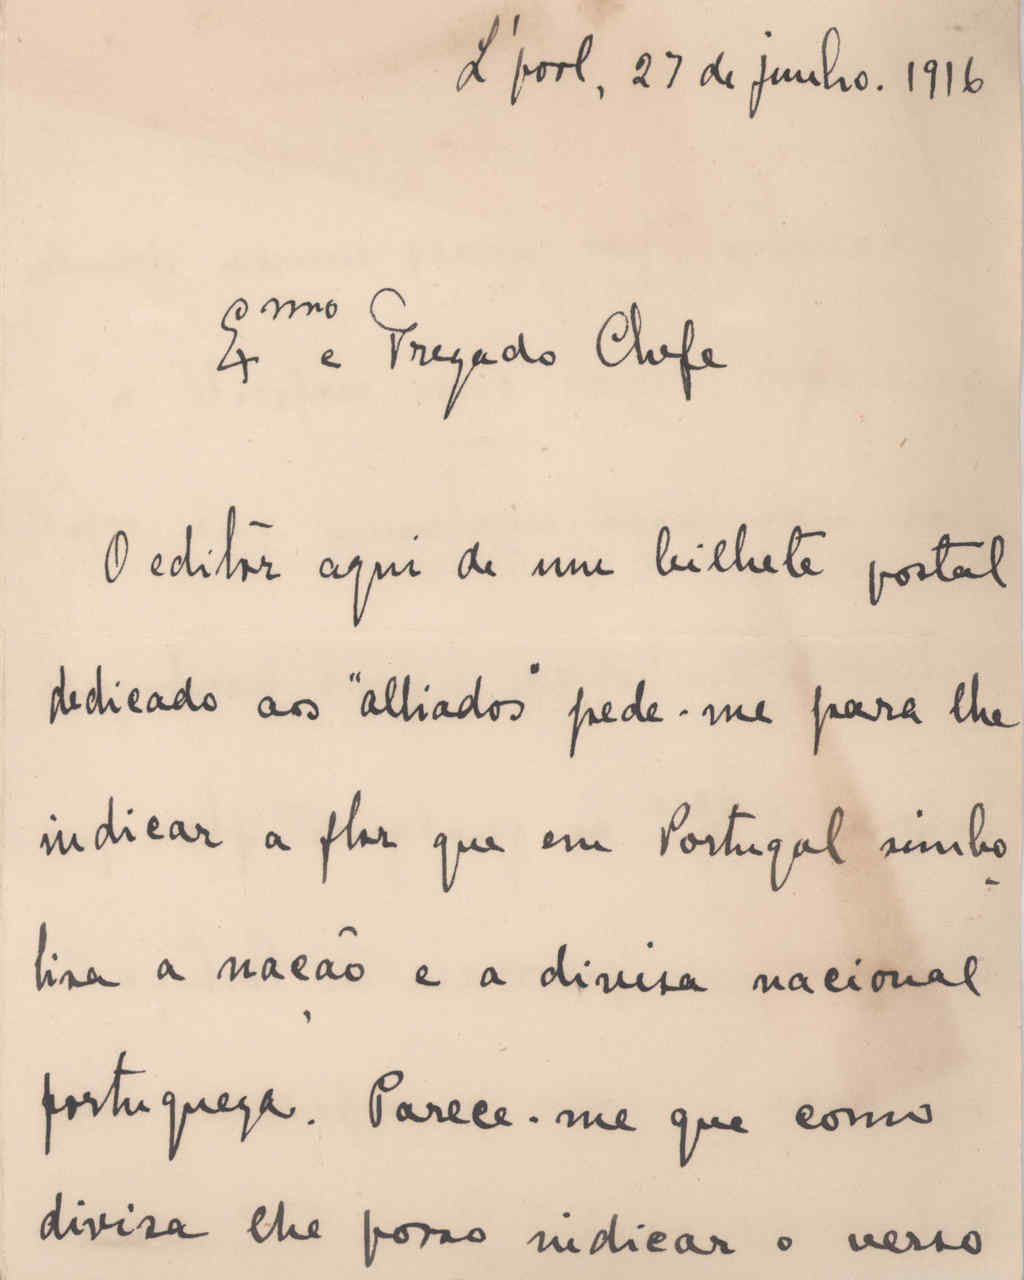 L'pool, 27 de junho. 1916
Exmo e Prezado Chefe
O editôr aqui de um bilhete postal
dedicado aos "alliados" pede-me para lhe
indicar a flor que em Portugal simbo
lisa a nação e a divisa nacional
portugueza. Parece-me que como
divisa lhe posso indicar o verso